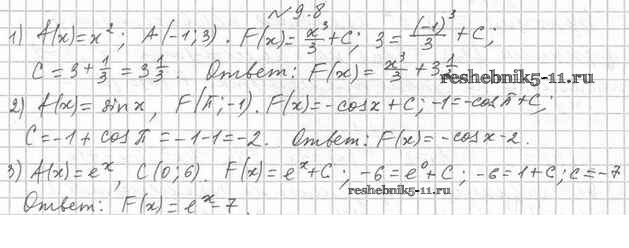 № 9.8
1) f(x) = x²; A(-1; 3). F(x) = x³/3 + C; 3 = (-1)³/3 + C;
C = 3 + 1/3 = 3 1/3. Ответ: F(x) = x³/3 + 3 1/3.
reshebnik5-11.ru
2) f(x) = sin x, F(π; -1). F(x) = -cos x + C; -1 = -cos π + C;
C = -1 + cos π = -1 - 1 = -2. Ответ: F(x) = -cos x - 2.
3) f(x) = eˣ, C(0; 6). F(x) = eˣ + C; -6 = e⁰ + C; -6 = 1 + C; C = -7
reshebnik5-11.ru
Ответ: F(x) = eˣ - 7.